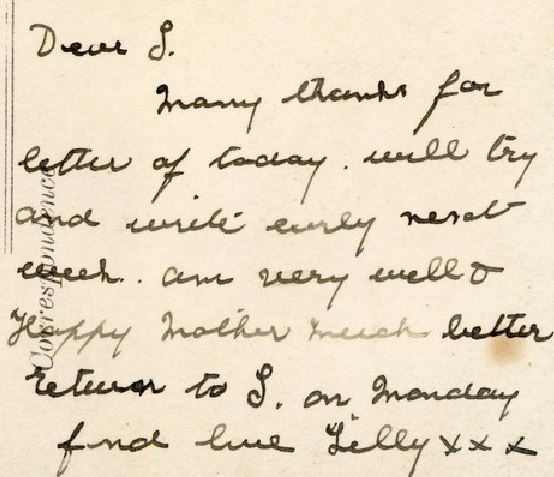 Dear S.
Many thanks for
letter of today. will try
and write early next
week. am very well &
Happy Mother much better
Return to S. on Monday
fond love Tilly x x x
Correspondence